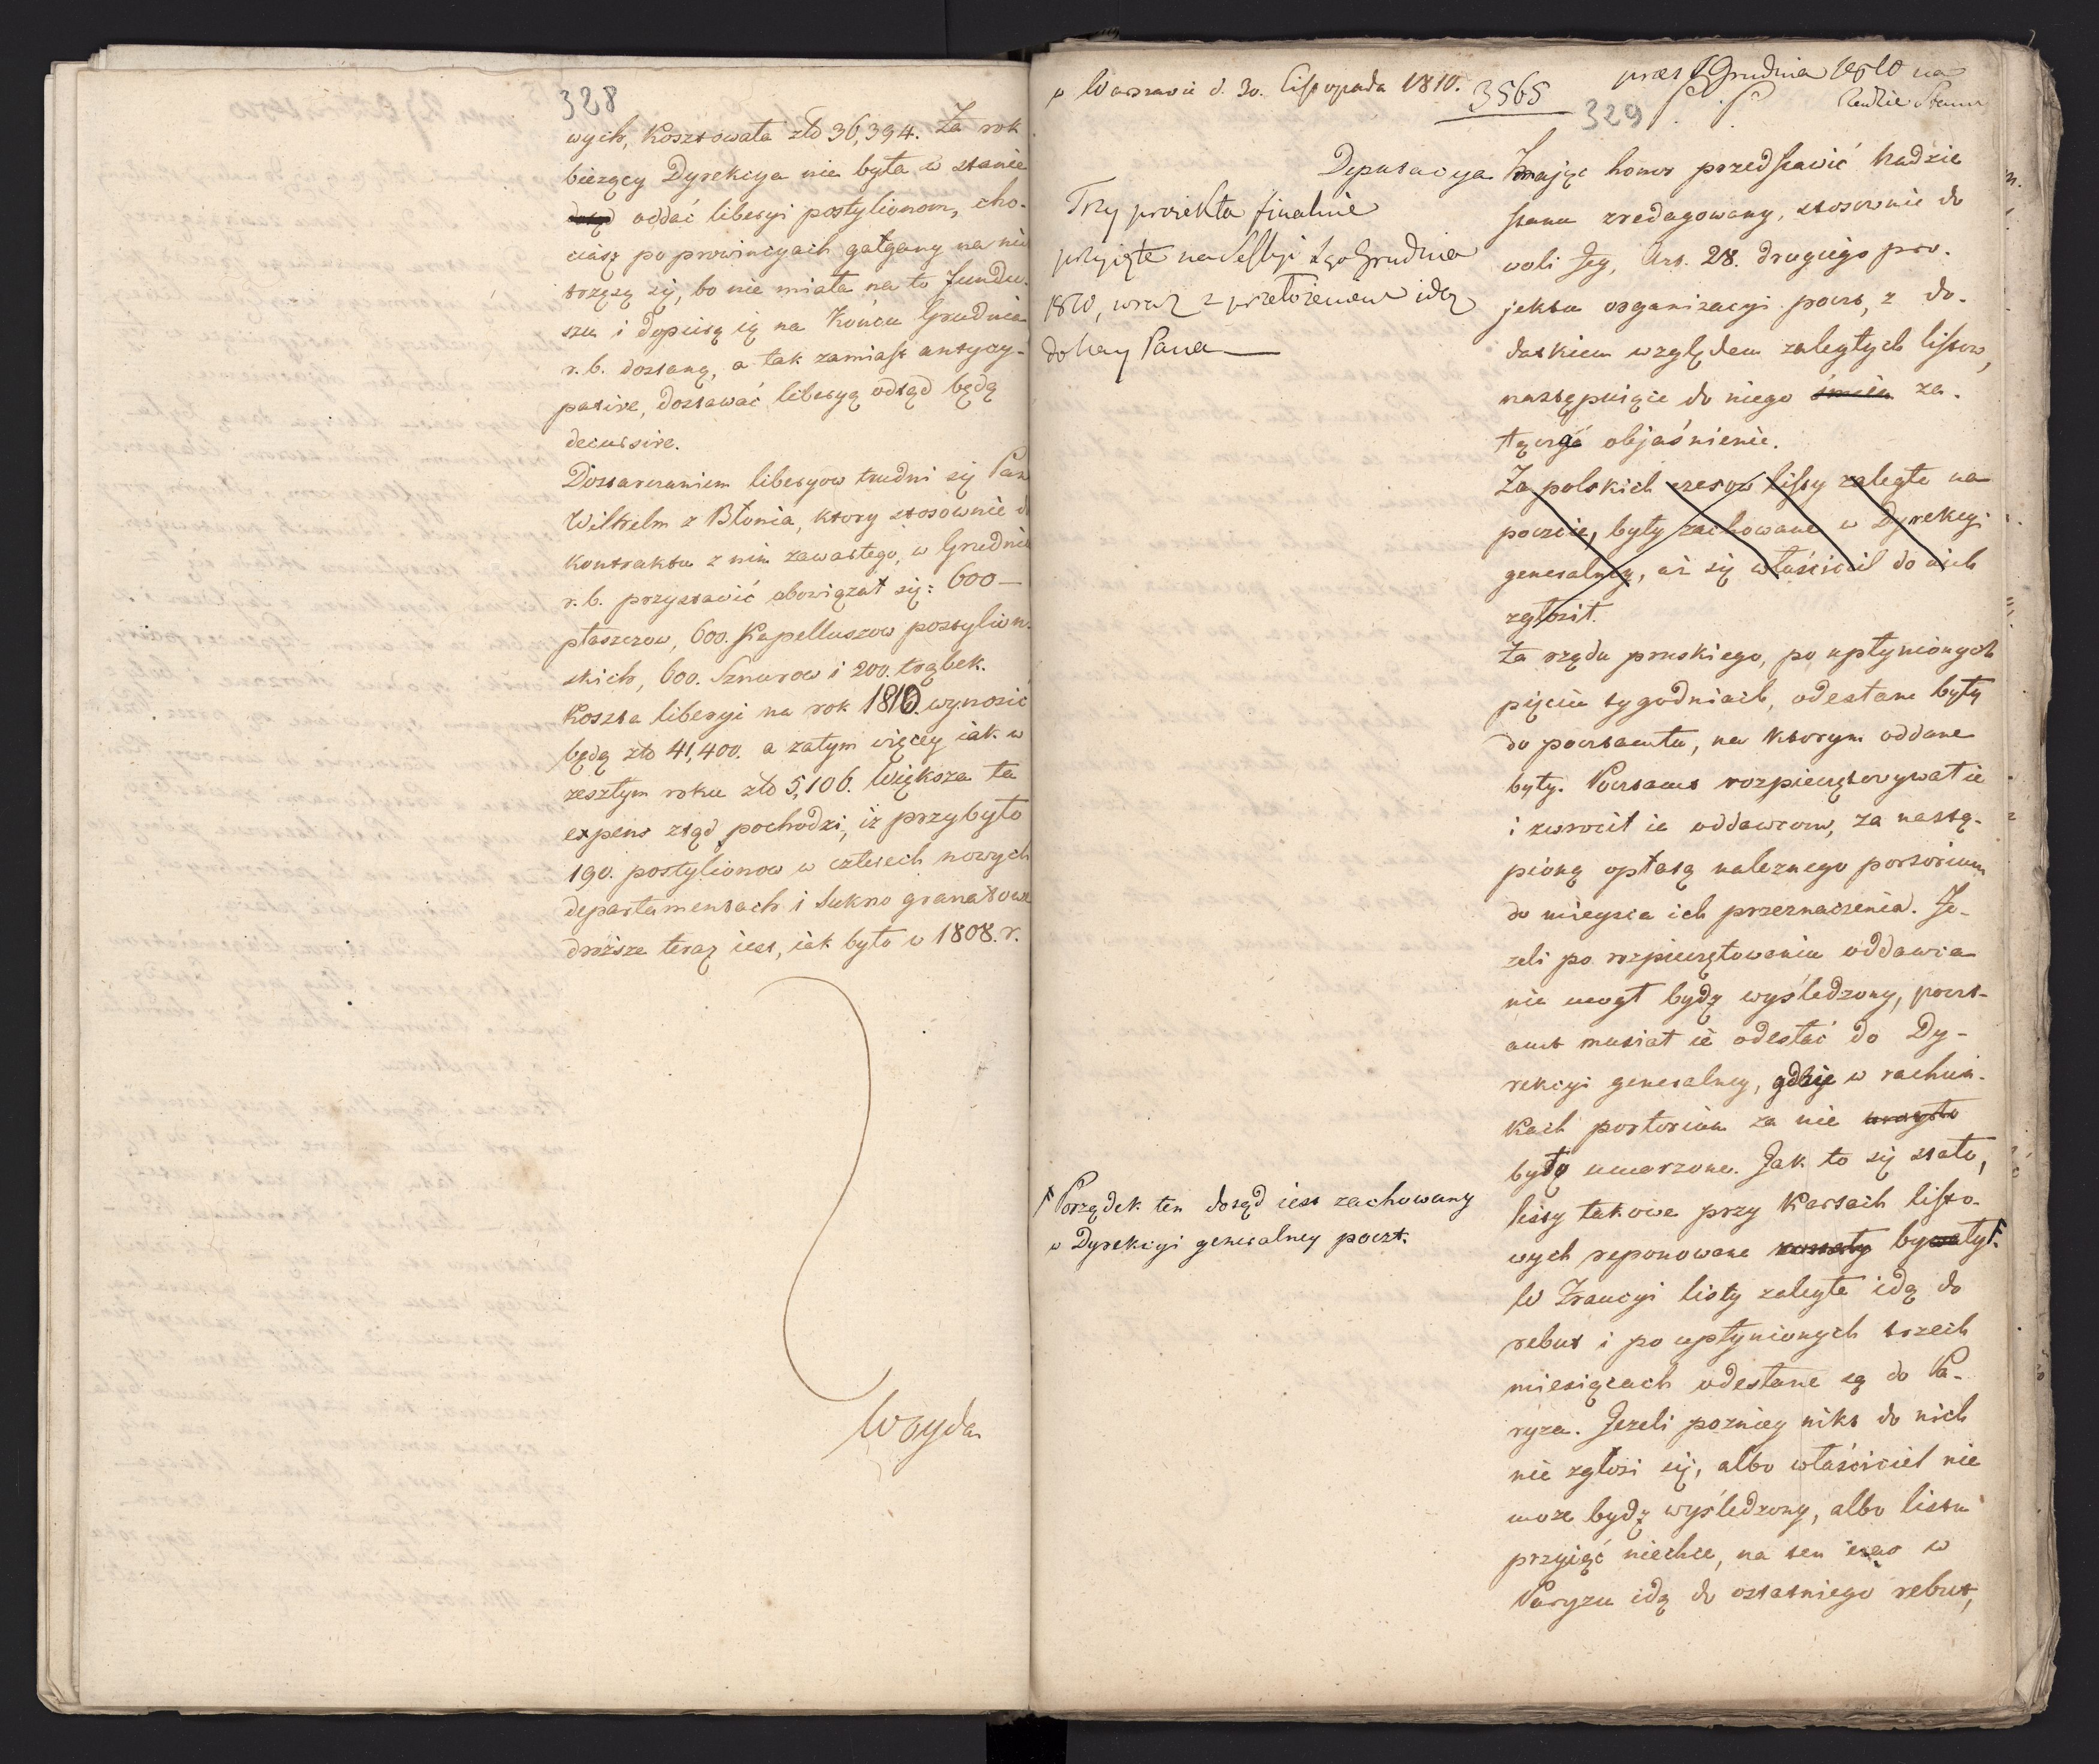 328
wych, kosztowała złł 36,394. Za rok
bieżący Dyrekcya nie była w stanie
oddać liberyi postylionom, cho-
ciaż po prowincyach gałgany na nich
trzęsą się, bo nie miała na to fundu-
szu i dopierą ią na końcu Grudnia
r. b. dostaną, a tak zamiast antycy-
pative, dostawać liberyą odtąd będą
decursive.
Dostarczaniem liberyow trudni się Pan
Wilhelm z Błonia, ktory stosownie do
kontraktu z nim zawartego, w Grudniu
r. b. przystawić obowiązał się: 600 —
płaszczow, 600. Kapelluszow postylion-
skich, 600. Sznurow i 200. trąbek.
Koszta liberyi na rok 1810. wynosić
będą złł 41,400. a zatym więcey iak w
zeszłym roku złł 5,106. Większa ta
expens ztąd pochodzi, iż przybyło
190. postylionow w czterech nowych
departamentach i sukno granatowe
droższe teraz iest, iak było w 1808. r.
Woyda
w Warszawie d. 30. Listopada 1810.
3565
329
præs 1 Grudnia 1810 na
Radzie Stanu
Deputacya
Trzy proiekta finalnie
przyięte na Sessyi 1go Grudnia
1810, wraz z przełożeniem idą
do Nay Pana
Mając honor przedstawić Radzie
Stanu zredagowany, stosownie do
woli Jey, Art. 28. drugiego pro-
jektu organizacyi poczt, z do-
datkiem względem zaległych listow,
następuiące do niego śmiem za-
łącza objaśnienie.
Za polskich czasow listy zaległe na
poczcie, były zachowane w Dyrekcyi
generalney, aż się właściciel do nich
zgłosił.
Za rządu pruskiego, po upłynionych
pięciu tygodniach, odesłane były
do pocztamtu, na ktorym oddane
były. Pocztamt rozpieczętowywał ie
i zwrocił ie oddawcom, za nastą-
pioną opłatą należnego portorium
do mieysca ich przeznaczenia. Je-
żeli po rozpieczętowaniu oddawca
nie mogł bydź wyśledzony, poczt-
amt musiał ie odesłać do Dy-
rekcyi generalney, gdzie w rachun-
kach portorium za nie
było umorzone. Jak to się stało,
listy takowe przy kartach listo-
wych reponowane zostały bywały.
F Porządek ten dotąd iest zachowany
w Dyrekcyi generalney poczt.
W Francyi listy zaległe idą do
rebut i po upłynionych trzech
miesiącach odesłane są do Pa-
ryża. Jeżeli pozniey nikt do nich
nie zgłosi się, albo właściciel nie
może bydź wyśledzony, albo listu
przyiąć niechce, na ten czas w
Paryżu idą do ostatniego rebut,